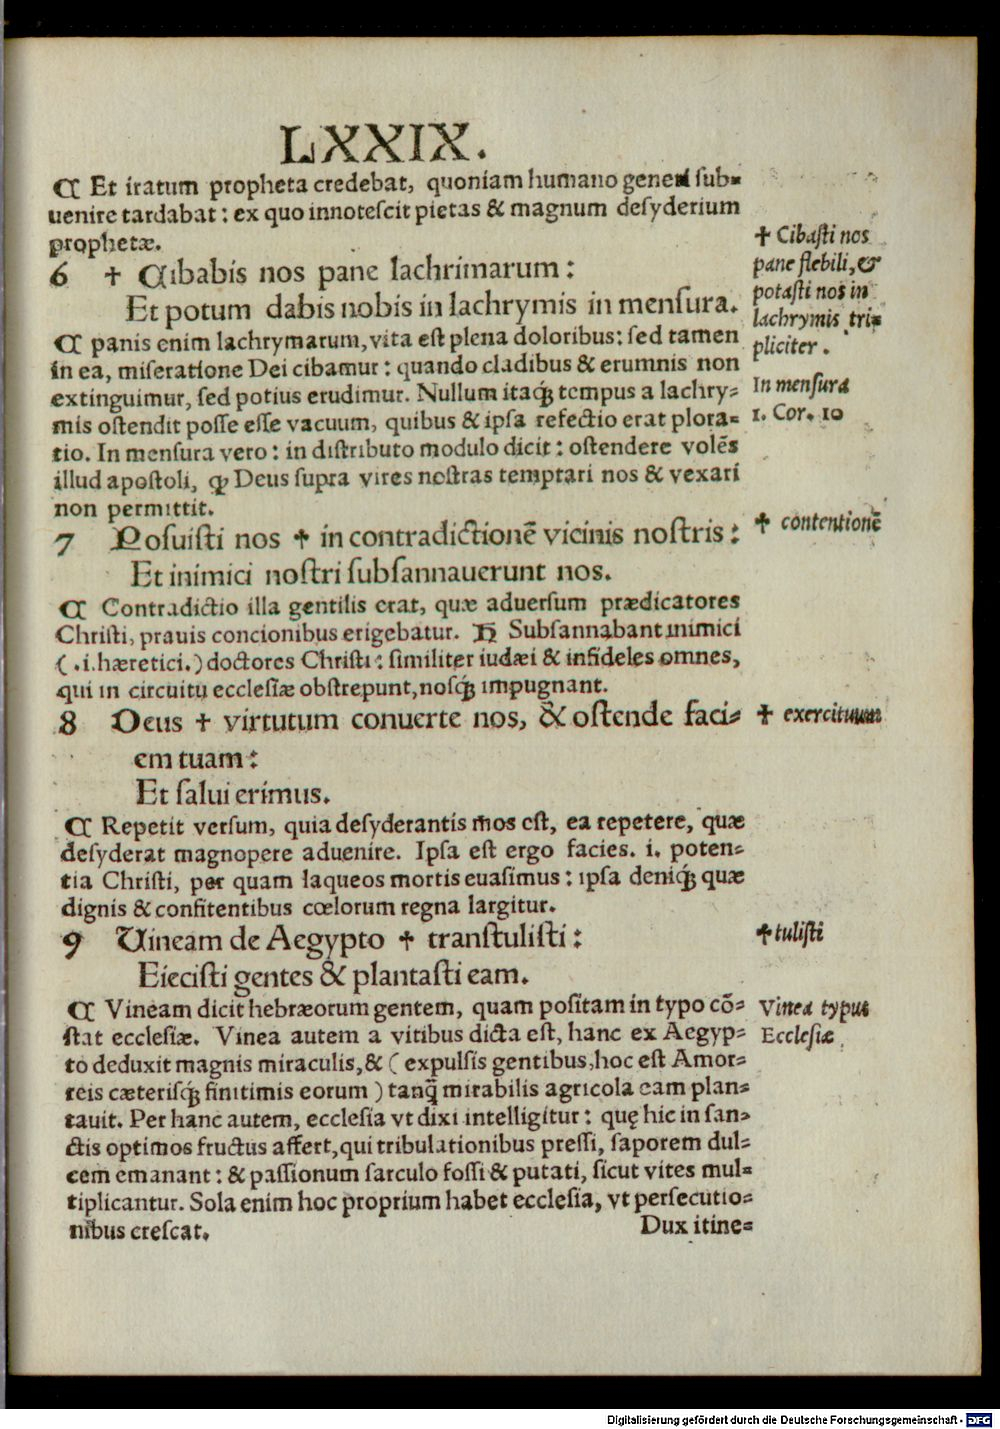 LXXIX.
¶ Et iratum propheta credebat, quoniam humano generi sub-
uenire tardabat: ex quo innotescit pietas & magnum desyderium
prophetæ.
6 ✝ Cibabis nos pane lachrimarum:
Et potum dabis nobis in lachrymis in mensura.
¶ panis enim lachrymarum, vita est plena doloribus: sed tamen
in ea, miseratione Dei cibamur: quando cladibus & erumnis non
extinguimur, sed potius erudimur. Nullum itaqȝ tempus a lachry-
mis ostendit posse esse vacuum, quibus & ipsa refectio erat plora-
tio. In mensura vero: in distributo modulo dicit: ostendere volēs
illud apostoli, ꝙ Deus supra vires nostras temptari nos & vexari
non permittit.
7 Posuisti nos ✝ in contradictionē vicinis nostris:
Et inimici nostri subsannauerunt nos.
¶ Contradictio illa gentilis erat, quæ aduersum prædicatores
Christi, prauis concionibus erigebatur. H Subsannabant inimici
(.i. hæretici.) doctores Christi: similiter iudæi & infideles omnes,
qui in circuitu ecclesiæ obstrepunt, nosqȝ impugnant.
8 Deus ✝ virtutum conuerte nos, & ostende faci-
em tuam:
Et salui erimus.
¶ Repetit versum, quia desyderantis mos est, ea repetere, quæ
desyderat magnopere aduenire. Ipsa est ergo facies. i. poten-
tia Christi, per quam laqueos mortis euasimus: ipsa deniqȝ quæ
dignis & confitentibus cœlorum regna largitur.
9 Uineam de Aegypto ✝ transtulisti:
Eiecisti gentes & plantasti eam.
¶ Vineam dicit hebræorum gentem, quam positam in typo cō-
stat ecclesiæ. Vinea autem a vitibus dicta est, hanc ex Aegyp-
to deduxit magnis miraculis, & (expulsis gentibus, hoc est Amor-
reis cæterisqȝ finitimis eorum) tanq̄ mirabilis agricola eam plan-
tauit. Per hanc autem, ecclesia vt dixi intelligitur: quę hic in san-
ctis optimos fructus affert, qui tribulationibus pressi, saporem dul-
cem emanant: & passionum sarculo fossi & putati, sicut vites mul-
tiplicantur. Sola enim hoc proprium habet ecclesia, vt persecutio-
nibus crescat.
Dux itine-
✝ Cibasti nos
pane flebili, &
potasti nos in
lachrymis tri-
pliciter.
In mensura
1. Cor. 10
✝ contentionē
✝ exercituum
✝ tulisti
Vinea typus
Ecclesiæ
Digitalisierung gefördert durch die Deutsche Forschungsgemeinschaft - DFG